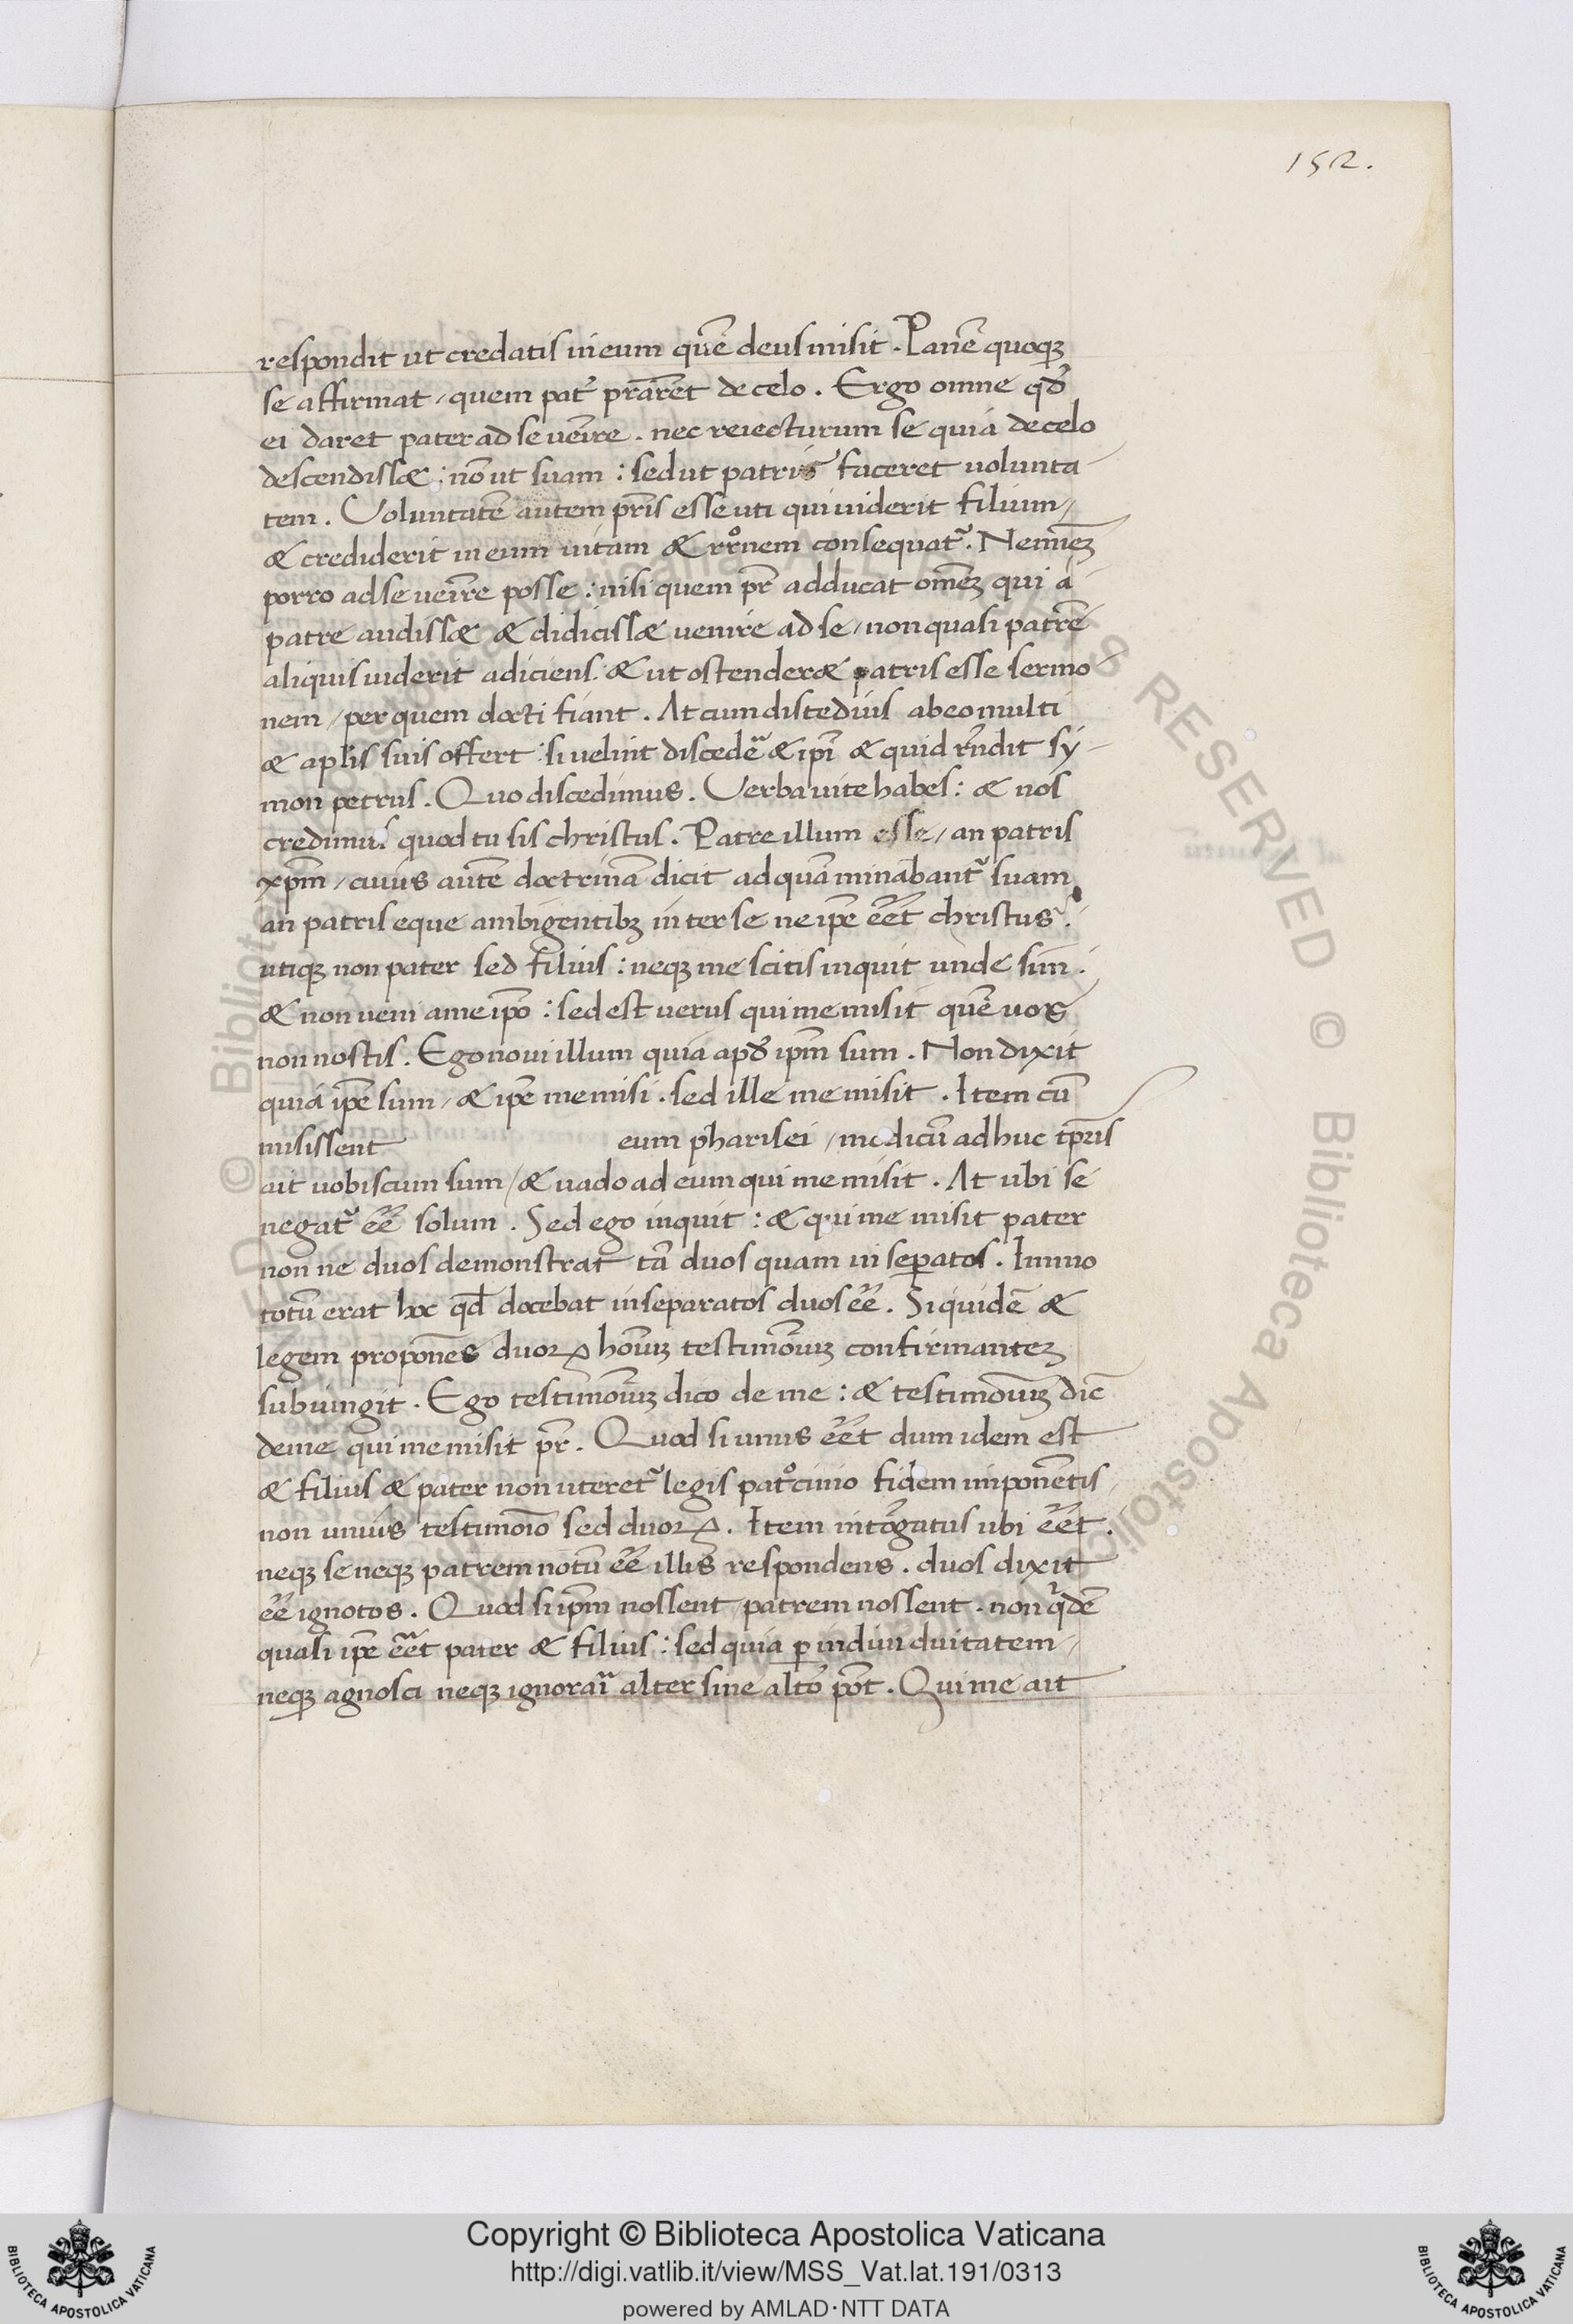 152.
respondit ut credatis in eum quẽ deus misit. Panẽ quoqꝫ
se affirmat / quem pat᷑ prãret de celo. Ergo omne qđ
ei daret pater ad se uẽire. nec reiecturum se quia de celo
descendissæ: nõ ut suam: sed ut patris faceret uolunta-
tem. Voluntatẽ autem pr̃is esse uti qui uiderit filium/
& crediderit in eum uitam & rr̊nem consequat᷑. Neminẽꝫ
porro ad se uẽire posse: nisi quem pr̃ adducat om̃eꝫ qui a
patre audissæ & didicissæ uenire ad se / non quasi patrẽ
aliquis uiderit adiciens. & ut ostenderæ patris esse sermo
nem / per quem docti fiant. At cum discedũis ab eo multi
& aplis suis offert: si uelint discedẽ & ip̃i & quid rñdit sy-
mon petrus. Quo discedimus. Verba uite habes: & nos
credimus quod tu sis christus. Patre illum esse / an patris
xp̃m / cuius autẽ doctrinã dicit ad quã minabant᷑ suam
an patris eque ambigentibꝫ inter se ne ip̃e eẽt christus.
utiqꝫ non pater sed filius: neqꝫ me scitis inquit unde sim.
& non ueni a me ip̃o: sed est uerus qui me misit quẽ uos
non nostis. Ego noui illum quia apđ ip̃m sum. Non dixit
quia ip̃e sum / & ip̃e me misi. sed ille me misit. Item cũ
misissent eum pharisei / modicũ adhuc tp̃ris
ait uobiscum sum / & uado ad eum qui me misit. At ubi se
negat᷑ eẽ solum. Sed ego inquit: & qui me misit pater
non ne duos demonstrat tã duos quam inseꝑatos. Immo
totũ erat hoc qđ docebat inseparatos duos eẽ. Siquidẽ &
legem proponẽs duoꝝ hoĩuꝫ testimõiuꝫ confirmanteꝫ
subiungit. Ego testimõiuꝫ dico de me: & testimõiuꝫ dic̃
de me qui me misit pr̃. Quod si unus eẽt dum idem est
& filius & pater non uteret᷑ legis pat̊cinio fidem imponẽtis
non unius testimõio sed duoꝝ. Item intõgatus ubi eẽt.
neqꝫ se neqꝫ patrem notũ eẽ illis respondens. duos dixit
eẽ ignotos. Quod si ip̃m nossent patrem nossent. non q̓dẽ
quasi ip̃e eẽt pater & filius: sed quia ꝑ indiuiduitatem/
neqꝫ agnosci neqꝫ ignorari alter sine alto põt. Qui me ait
© Biblioteca Apostolica Vaticana
RESERVED © Biblioteca Apostolica
Copyright © Biblioteca Apostolica Vaticana
http://digi.vatlib.it/view/MSS_Vat.lat.191/0313
powered by AMLAD·NTT DATA
BIBLIOTECA APOSTOLICA VATICANA
BIBLIOTECA APOSTOLICA VATICANA